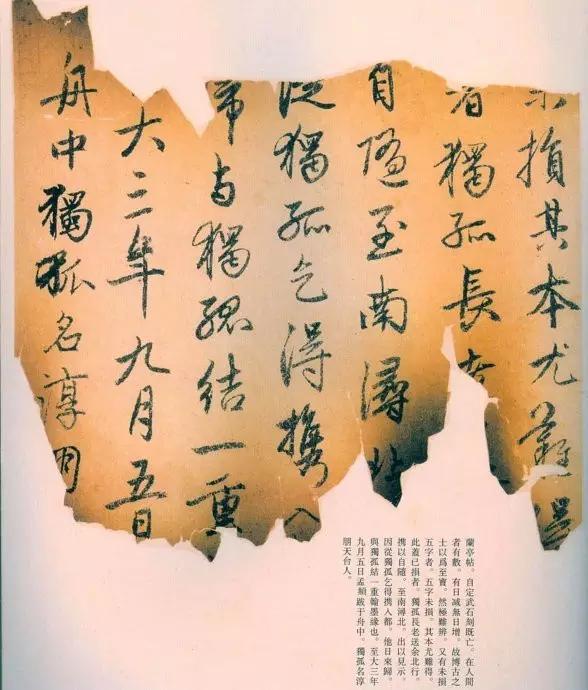 未損其本尤難得
者獨孤長老
自隨至南潯北
從獨孤乞得攜入
歸與獨孤結一重
大三年九月五日
舟中獨孤名淳朋
蘭亭帖。自定武石刻既亡。在人間
者有數。有日減無日增。故博古之
士以爲至寶。然極難辨。又有未損
五字者。五字未損。其本尤難得。
此蓋已損者。獨孤長老送余北行。
携以自隨。至南潯北。出以見示。
因從獨孤乞得携入都。他日來歸。
與獨孤結一重翰墨緣也。至大三年
九月五日孟頫跋于舟中。獨孤名淳
朋天台人。